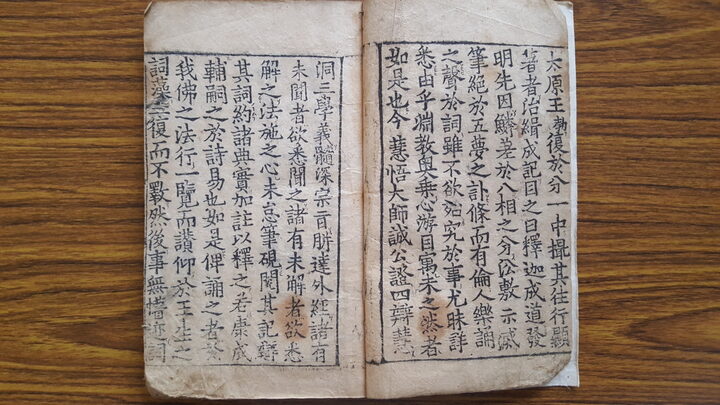 太原王勃復於分一中撮其往行顯
著者治緝成記目之曰釋迦成道發
明先因鱗差於八相之分訟敷示滅
筆絶於五夢之訃條而有倫人樂誦
之聲於詞雖不欲宛究於事尤昧詳
悉由乎淵教奥乗心游目寓未之然者
如是也今慧悟大師誠公證四辯慧
洞三學義髓深宗百朋達外經諸有
未聞者欲悉聞之諸有未解者欲悉
解之法施之心未忘筆硯閱其記
其詞約諸典實加註以釋之若康成
輔嗣之於詩易也如是俾誦之者
我佛之法行一覽而讃仰於王生之
詞藻三復而不斁然後事無惜